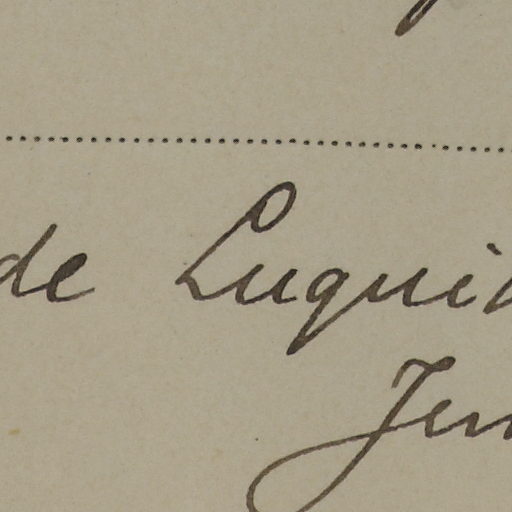 de Luqui
Jen